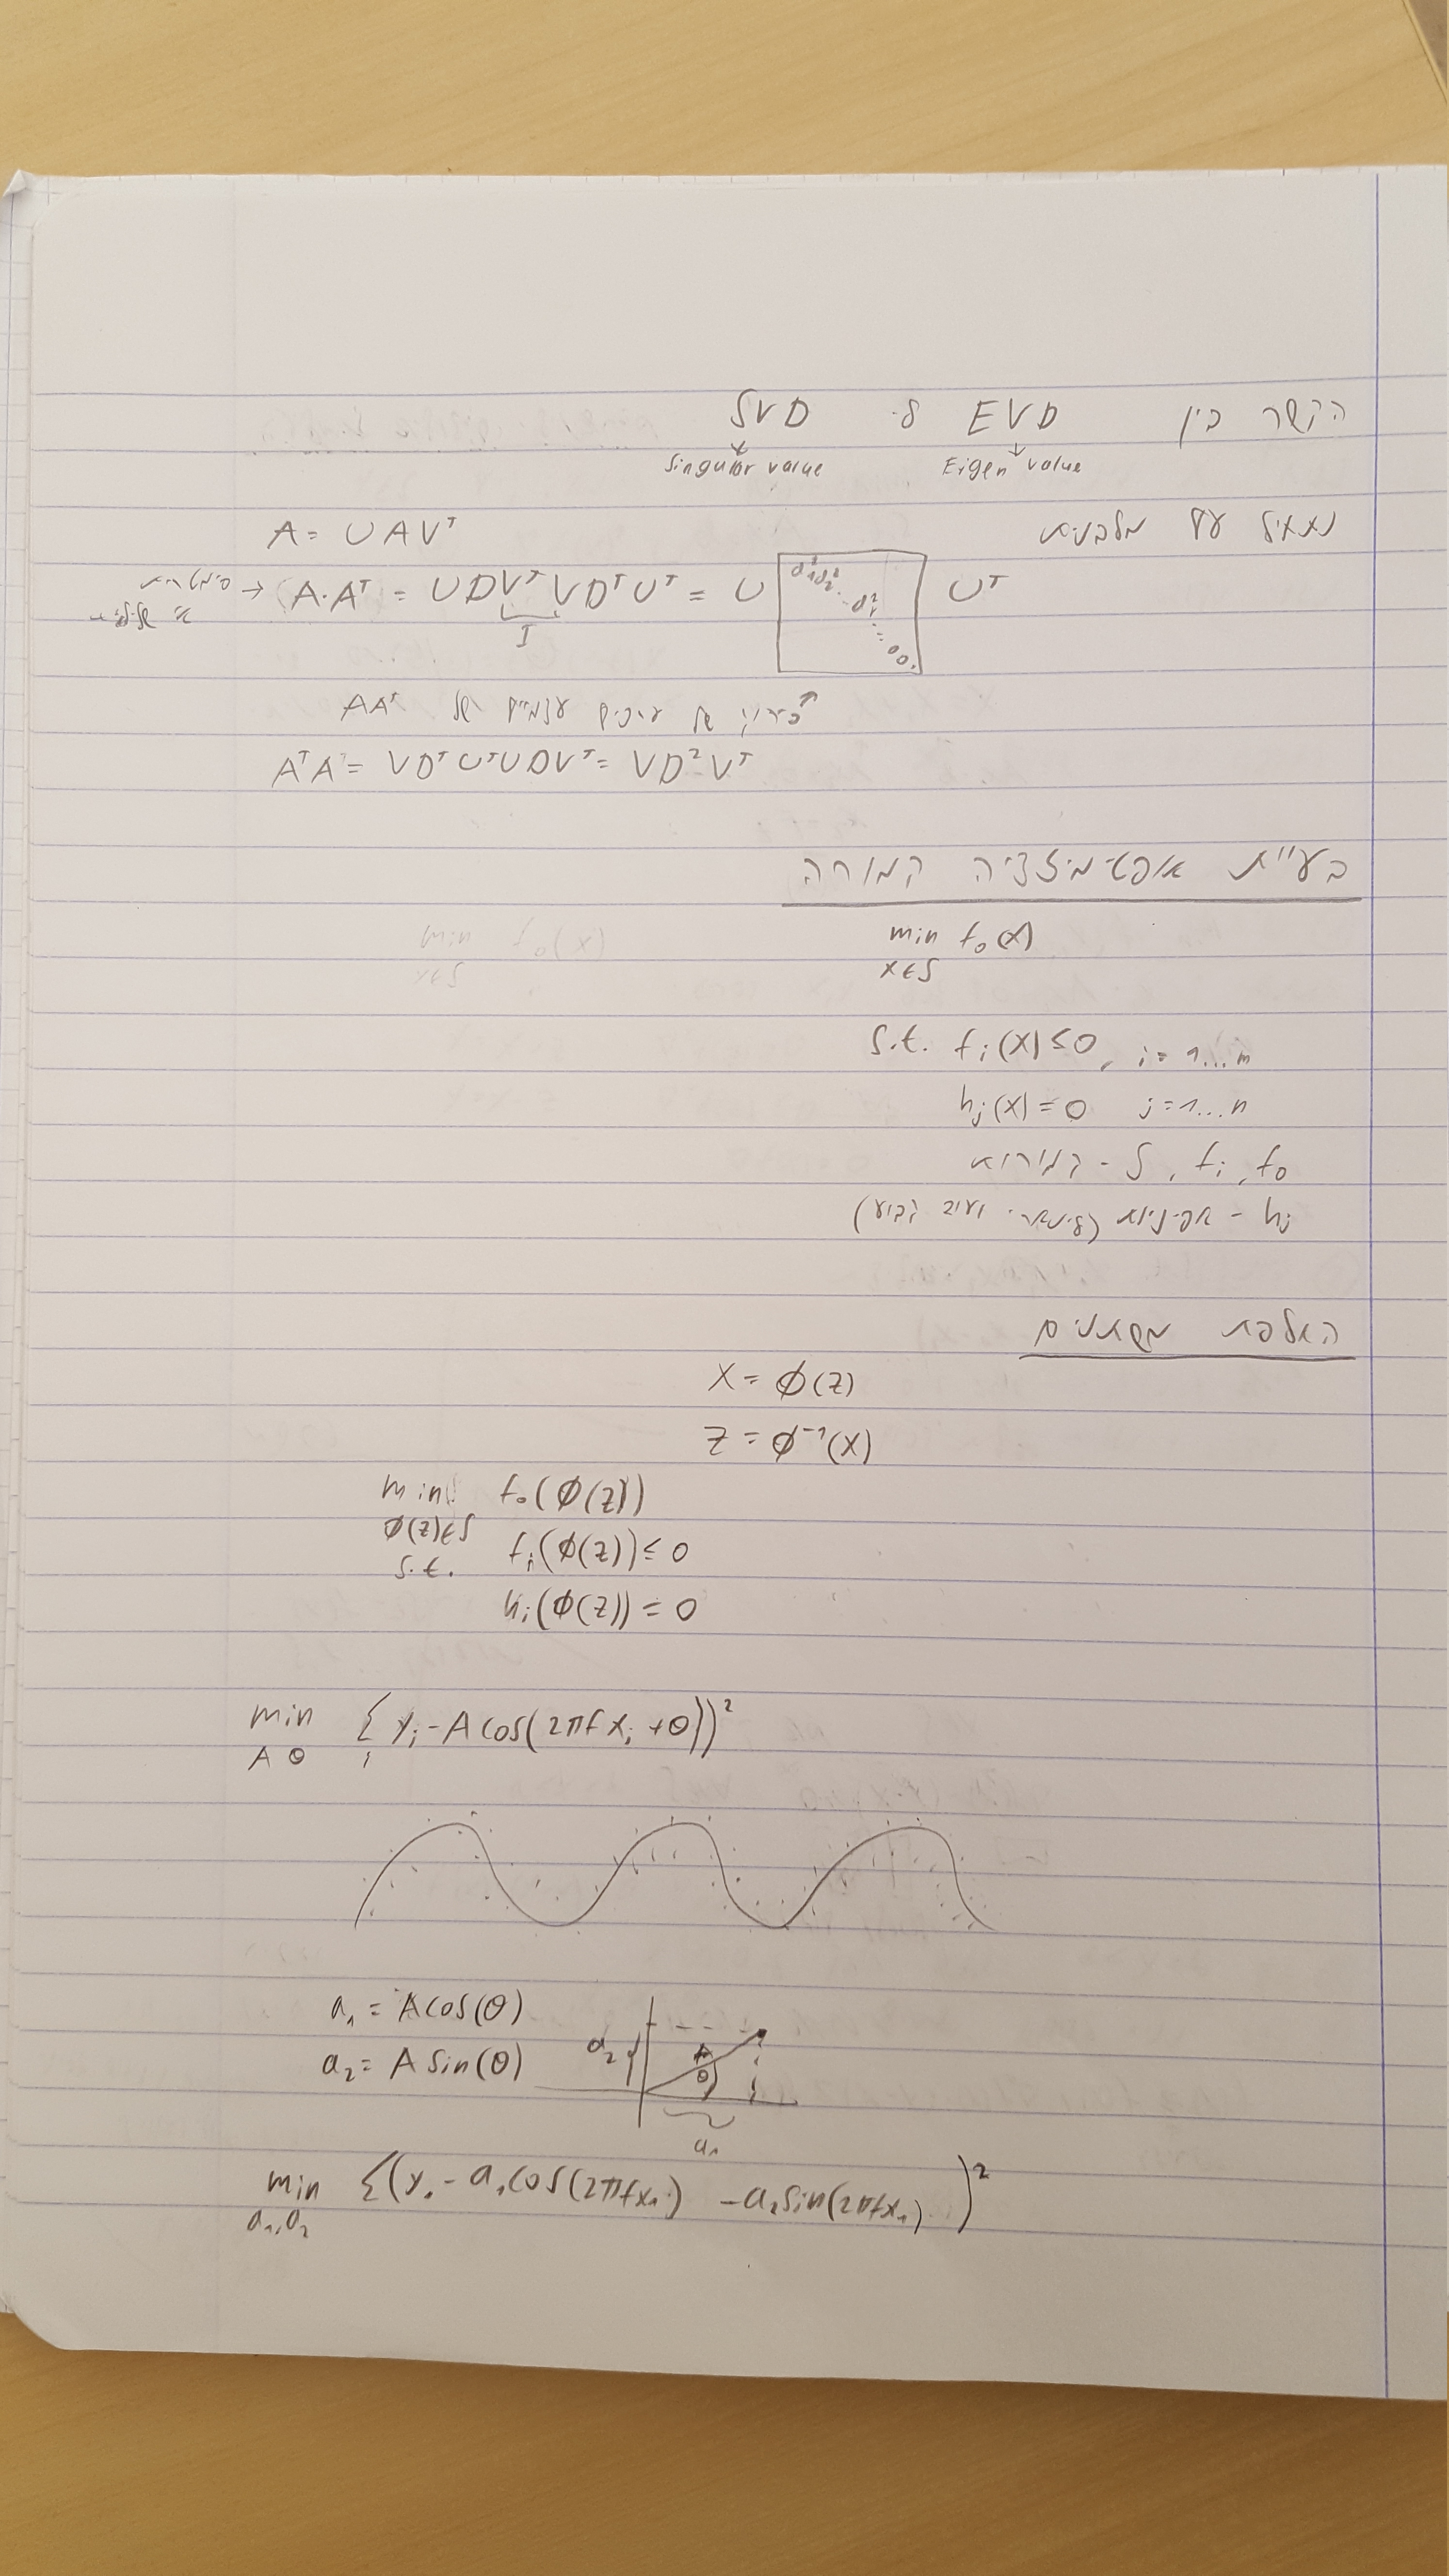 הקשר בין EVD ל- SVD
Eigen value
Singular value
נתחיל עם מלבנית
A = U A Vᵀ
סימטרית → A·Aᵀ = U D Vᵀ V Dᵀ Uᵀ = U d₁² d₂² ... dᵢ² ... 0 0 Uᵀ
I
של ערכים עצמיים של AAᵀ
AᵀA = V Dᵀ Uᵀ U D Vᵀ = V D² Vᵀ
בעיית אופטימיזציה קמורה
min f₀(x)
x∈S
s.t. fᵢ(x) ≤ 0, i = 1...m
hⱼ(x) = 0 j = 1...n
f₀, fᵢ, S - קמורות
hⱼ - אפיניות (לינארי ועוד קבוע)
החלפת משתנים
X = Φ(z)
Z = Φ⁻¹(X)
min f₀(Φ(z))
Φ(z)∈S
s.t. fᵢ(Φ(z)) ≤ 0
hᵢ(Φ(z)) = 0
min Σ yᵢ - A cos(2πf xᵢ + θ))²
A θ i
a₁ = A cos(θ)
a₂ = A sin(θ)
a₂ A θ
a₁
min Σ(yᵢ - a₁cos(2πfx₁) - a₂sin(2πfx₁))²
a₁, a₂